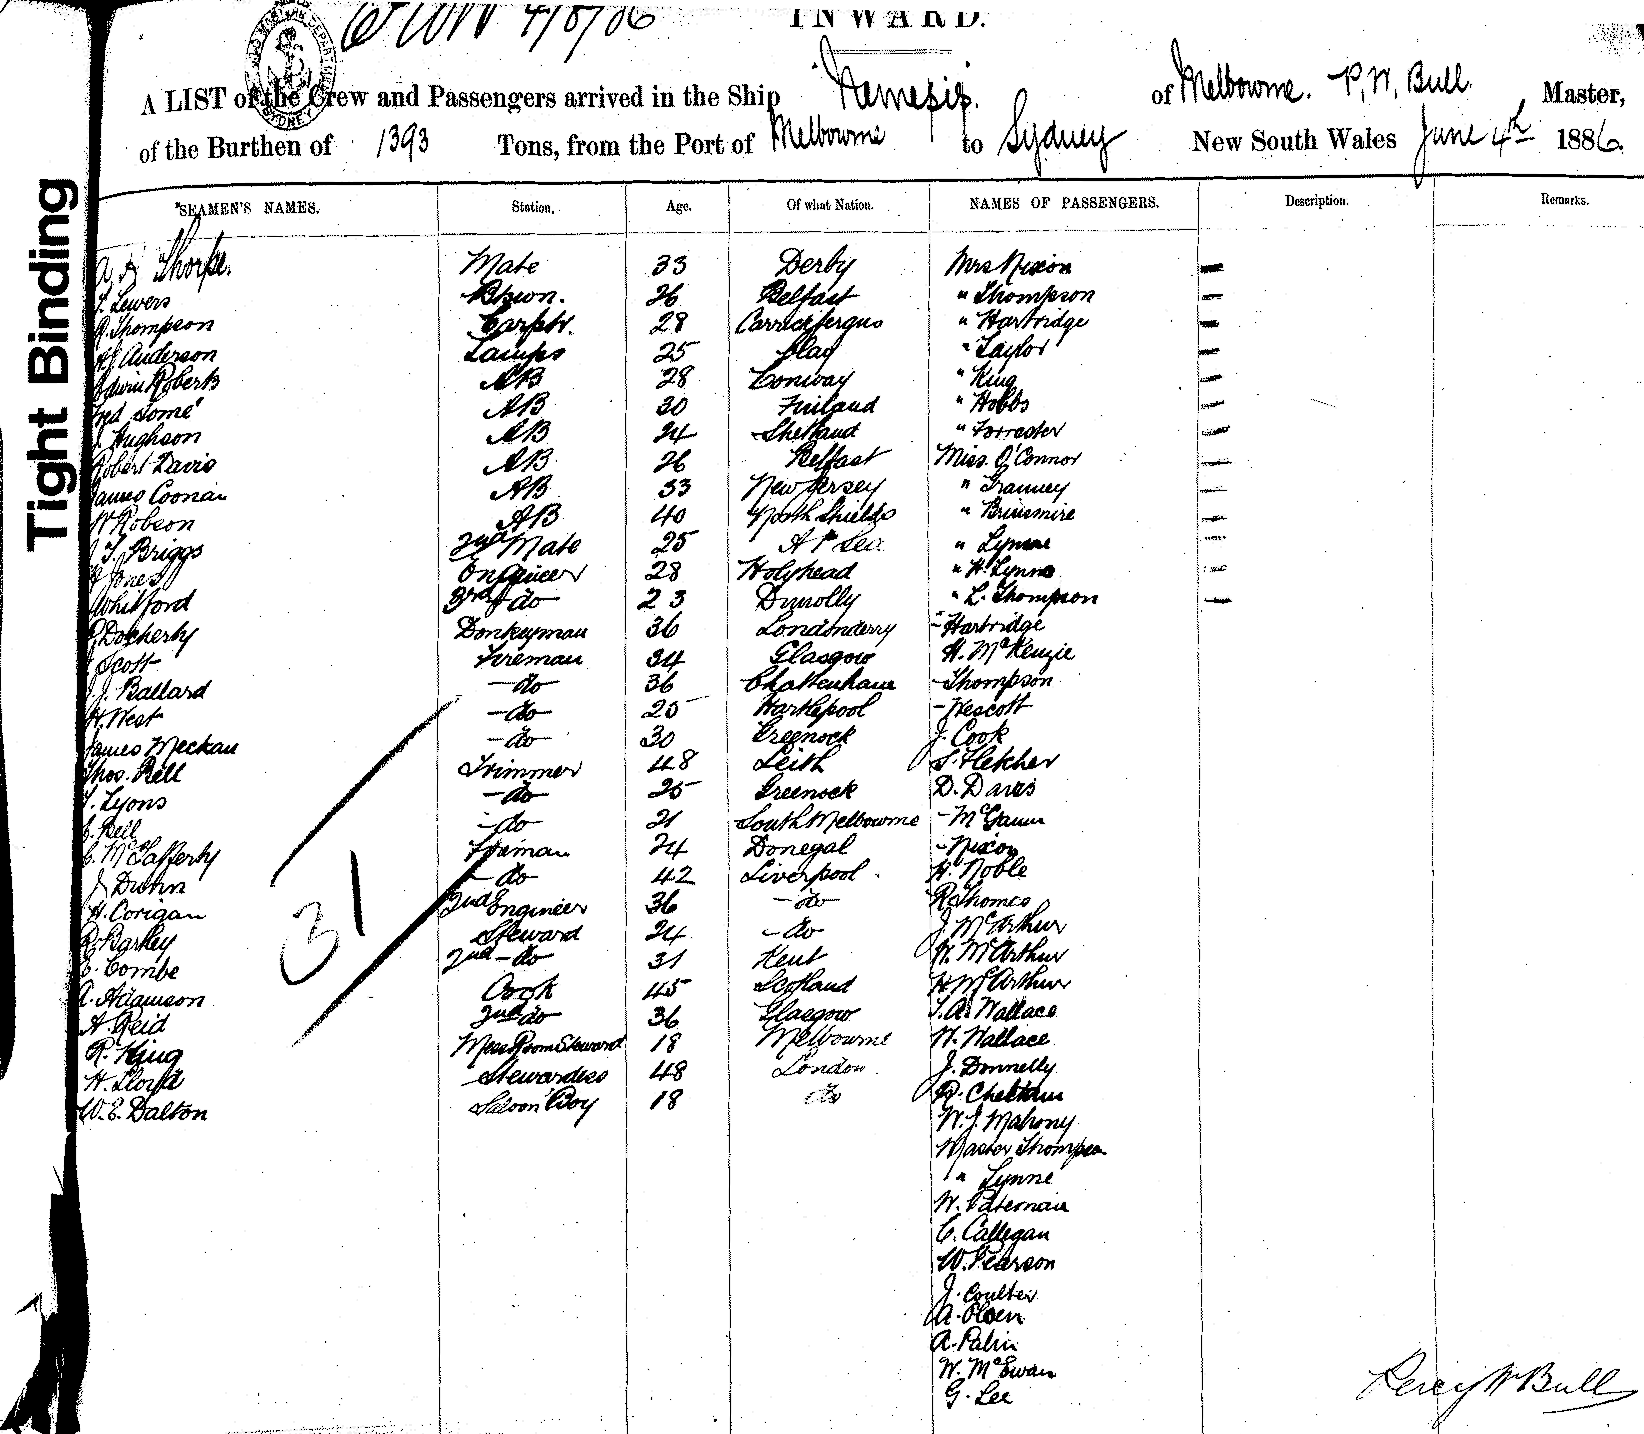 4/6/86
INWARD.
A LIST of the Crew and Passengers arrived in the Ship "Nemesis. of Melbourne. P. W. Bull Master,
of the Burthen of 1393 Tons, from the Port of Melbourne to Sydney New South Wales June 4th 1886.
Tight Binding
SEAMEN'S NAMES. Station. Age. Of what Nation. NAMES OF PASSENGERS. Description. Remarks.
Thorpe. Mate 33 Derby Mrs Nixon
Lewers Bswn. 26 Belfast " Thompson
R. Thompson Carptr. 28 Carrickfergus " Hartridge
Anderson Lamps 25 " Taylor
Edwin Roberts AB 28 Conway " King
Fred AB 30 Finland " Hobbs
J. Hughson AB 24 Shetland " Forrester
Robert Davis AB 26 Belfast Miss. O'Connor
James Coonan AB 33 New Jersey "
W Robson AB 40 North Shields "
Briggs 2nd Mate 25 At Sea " Lynne
Jones Engineer 28 Holyhead " H. Lynne
Whitford 3rd do 23 Dunolly " L. Thompson
Docherty Donkeyman 36 Londonderry - Hartridge
Scott Fireman 34 Glasgow H. McKenzie
J. Ballard - do 36 - Thompson
H. West - do 25 Hartlepool - Wescott
James Meckan - do 30 Greenock J. Cook
Thos. Bell Trimmer 48 Leith S. Fletcher
T. Lyons - do 25 Greenock D. Davis
Bell - do 21 South Melbourne - McGaun
C. McCafferty Fireman 24 Donegal - Nixon
J Dunn - do 42 Liverpool. H. Noble
H. Corigan 2nd Engineer 36 - do R. Thomas
Barkley Steward 24 - do J. McArthur
Combe 2nd - do 31 Kent W. McArthur
A. Adamson Cook 45 Scotland H McArthur
A. Reid 2nd do 36 Glasgow T. A. Wallace
R. King Mess Room Steward 18 Melbourne W. Wallace
H. Lloyd Stewardess 48 London. J. Donnelly
W. E. Dalton Saloon Boy 18 do R.
W. J. Mahony
Master Thompson
" Lynne
W. Pateman
C. Callegan
W. Pearson
J. Coulter
A. Olsen
A. Palin
W. McEwan
G. Lee
31
Percy W Bull